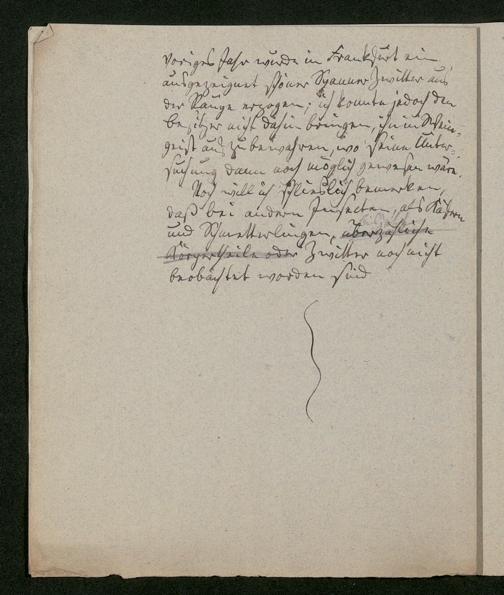 Voriges Jahr wurde in Frankfurt ein
ausgezeichnet schöner Spanner Zwitter aus
der Raupe erzogen; ich konnte jedoch den
Besitzer nicht dahin bringen, ihn in Wein-
geist aufzubewahren, wo seine Unter-
suchung dann noch möglich gewesen wäre.
Noch will ich schließlich bemerken,
daß bei andern Insecten, als Käfern
und Schmetterlingen, überzählige
Körpertheile oder Zwitter noch nicht
beobachtet worden sind